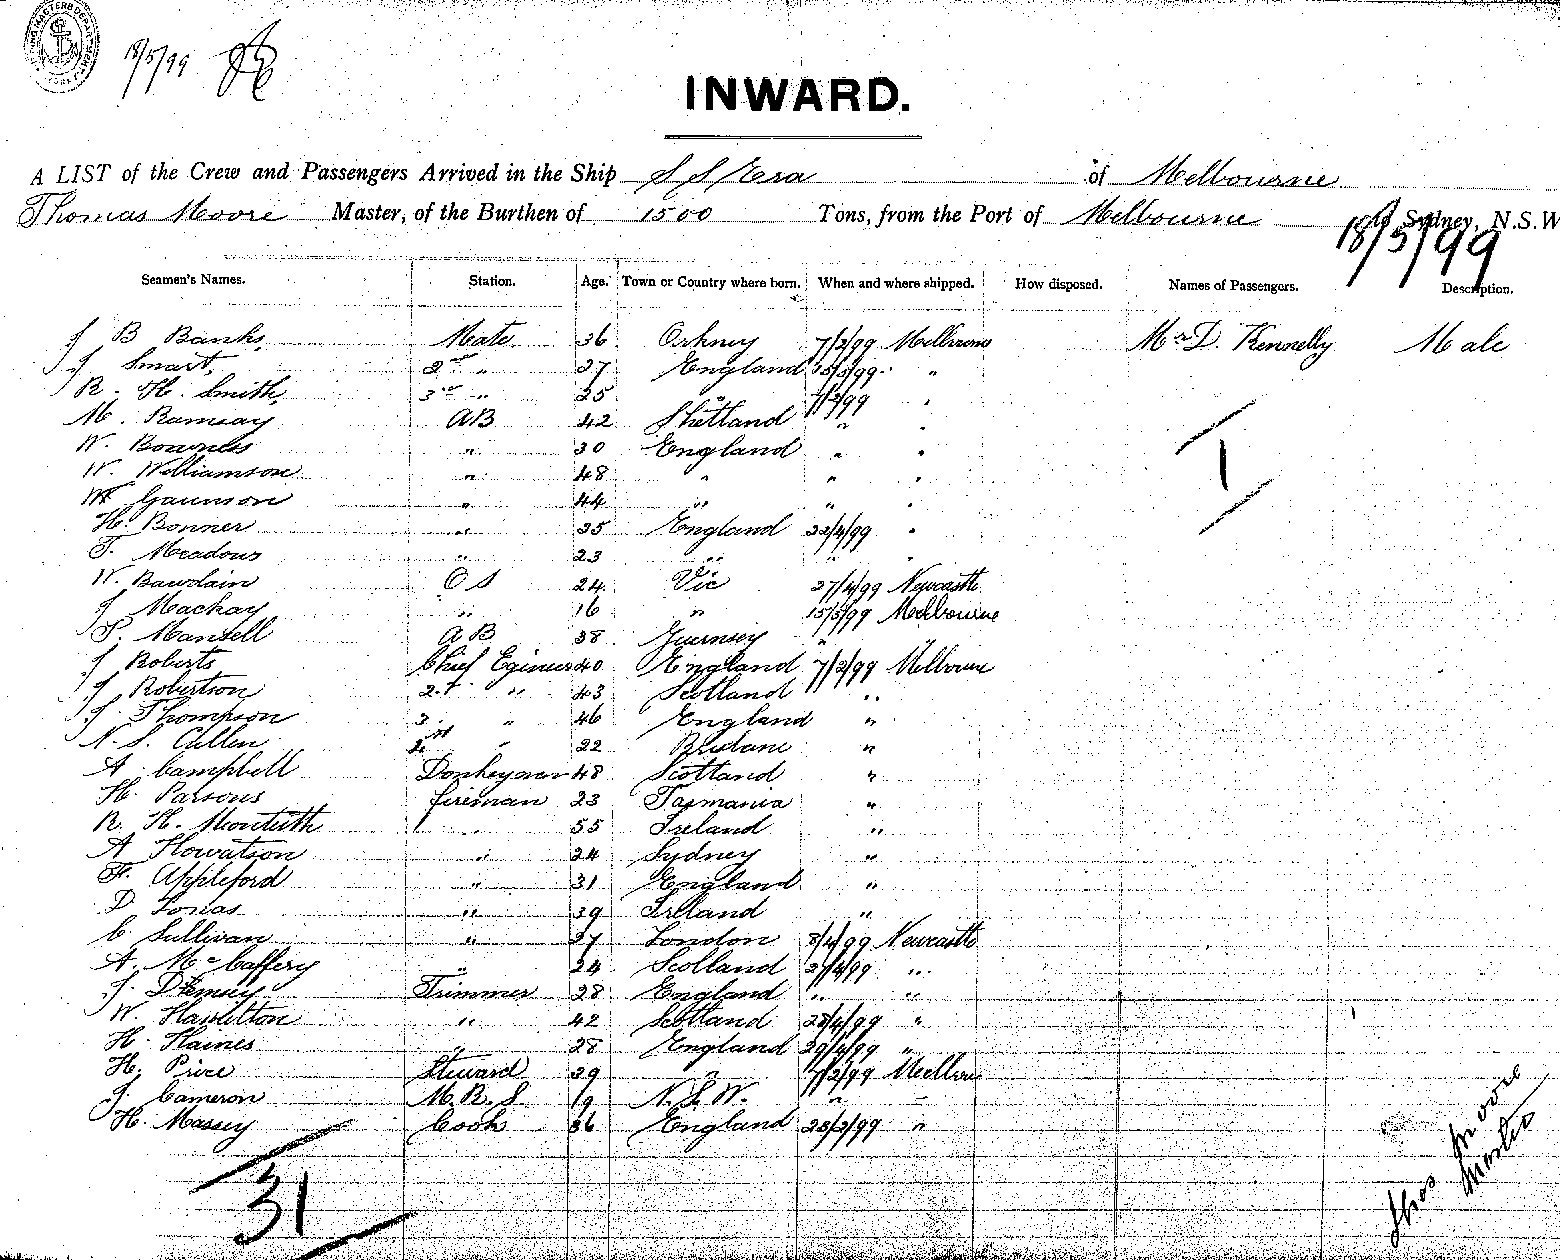 18/5/99
INWARD.
A LIST of the Crew and Passengers Arrived in the Ship S S Era of Melbourne
Thomas Moore Master, of the Burthen of 1500 Tons, from the Port of Melbourne to Sydney, N.S.W
18/5/99
Seamen's Names. Station. Age. Town or Country where born. When and where shipped. How disposed. Names of Passengers. Description.
J B Banks Mate 36 Orkney 7/2/99 Melbourne Mr D. Kennelly Male
J Smart 2nd " 27 England 15/5/99 "
R. H. Smith 3rd " 25 " 7/2/99 "
M. Ramsay AB 42 Shetland " "
W. Bowness " 30 England " "
W. Williamson " 48 " " "
W Gaunson " 44 " " "
H. Bonner " 35 England 22/4/99 "
T. Meadows " 23 " " "
W. Bawdain O S 24 Vic 27/4/99 Newcastle
J Mackay " 16 " 15/5/99 Melbourne
P. Mansell AB 38 Guernsey " "
J Roberts Chief Egineer 40 England 7/2/99 Melbourne
J Robertson 2nd " 43 Scotland "
J. Thompson 3 " 46 England "
N. S. Cullen " 22 Brisbane "
A Campbell Donkeyman 48 Scotland "
H. Parsons fireman 23 Tasmania "
R. H. Monteith " 55 Ireland "
A Howatson " 24 Sydney "
F. Appleford " 31 England "
D Jonas " 39 Ireland "
C Sullivan " 27 London 8/4/99 Newcastle
A. McCaffery " 24 Scotland 27/4/99 "
J. Dempsey Trimmer 28 England " "
W. Hazleton " 42 Scotland 28/4/99 "
H. Haines " 28 England 29/4/99 "
H. Price Steward 39 " 7/2/99 Melbourne
J. Cameron M.R.S 19 N.S.W. " "
H. Massey Cook 36 England 28/3/99 "
1
31
Thos Moore
Master